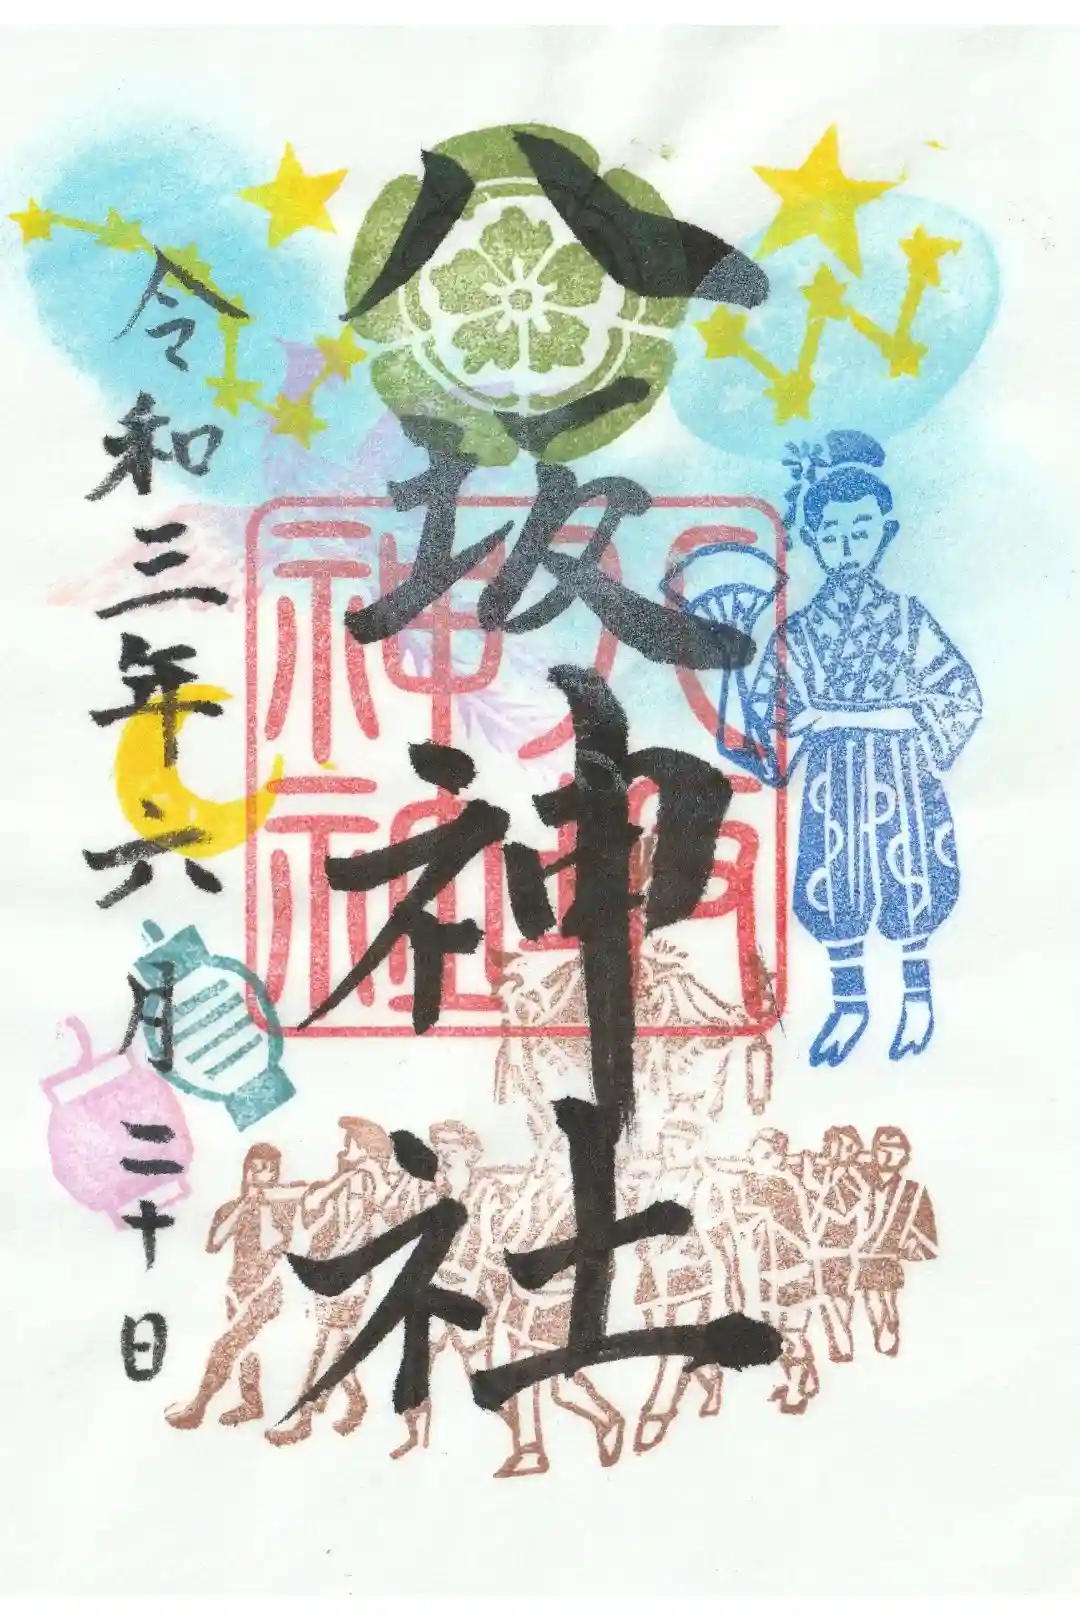 八坂神社
八坂
神社
令和三年六月二十日